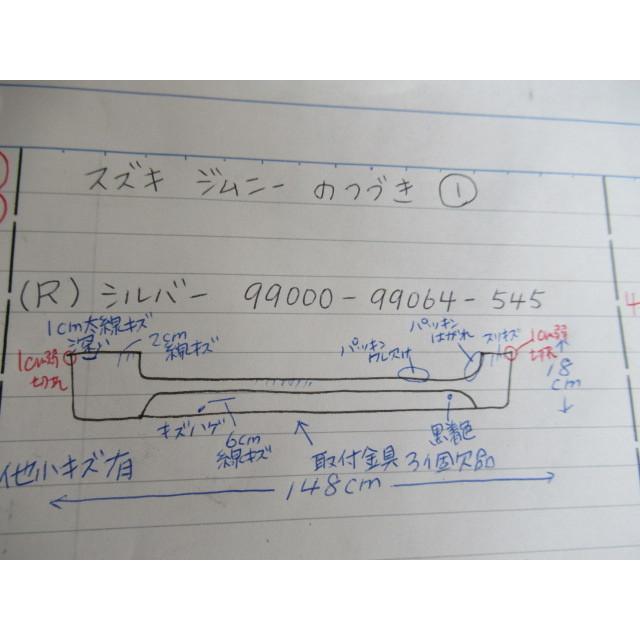 スズキ ジムニー のつづき ①
(R) シルバー 99000-99064-545
1cm太線キズ
深い
2cm
線キズ
パッキン
はがれ
スリキズ
1cm弱
切れ
1cm弱
切れ
パッキン
18
cm
キズハゲ
6cm
線キズ
黒着色
他小キズ有
取付金具 3個欠品
148cm